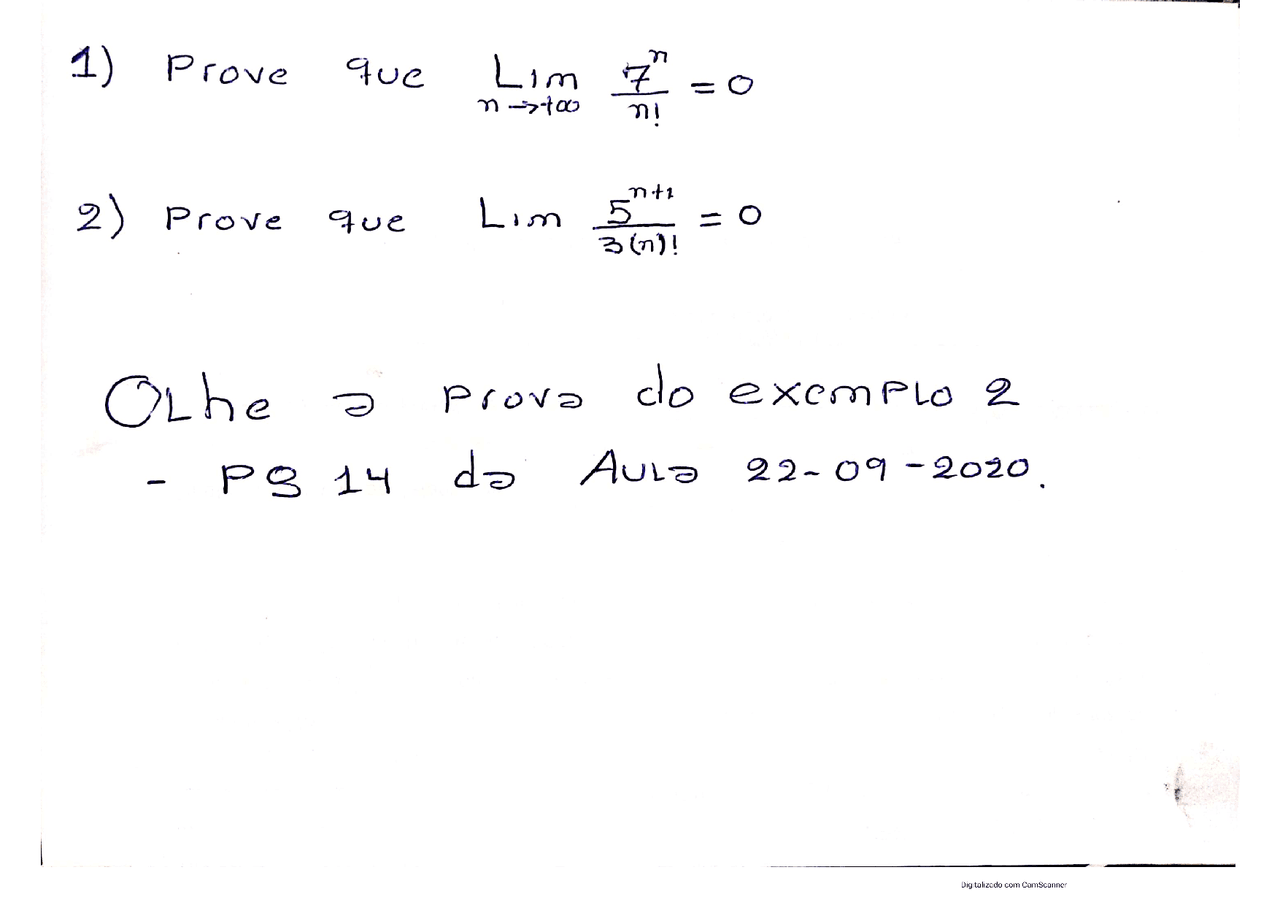 1) Prove que Lim n→+∞ 7^n/n! = 0
2) Prove que Lim 5^(n+1)/3(n)! = 0
Olhe a prova do exemplo 2
- PG 14 da Aula 22-09-2020.
Digitalizado com CamScanner